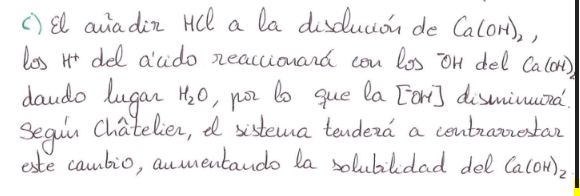 c) El añadir HCl a la disolución de Ca(OH)₂,
los H⁺ del ácido reaccionará con los ⁻OH del Ca(OH)₂
dando lugar H₂O, por lo que la [⁻OH] disminuirá.
Según Châtelier, el sistema tenderá a contrarrestar
este cambio, aumentando la solubilidad del Ca(OH)₂.